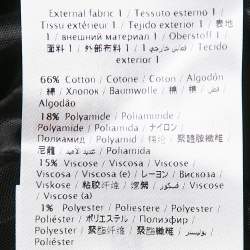 External fabric 1 / Tessuto esterno 1 /
Tissu extérieur 1 / Tejido exterior 1 / 表地
1 / внешний материал 1 / Oberstoff 1 /
面料 1 / 外部布料 1 / قماش خارجي 1 / Tecido
exterior 1
66% Cotton / Cotone / Coton / Algodón
/ 綿 / Хлопок / Baumwolle / 棉 / 棉 / قطن /
Algodão
18% Polyamide / Poliammide /
Polyamide / Poliamida / ナイロン /
Полиамид / Polyamid / 锦纶 / 聚醯胺纖維 /
Poliamida
15% Viscose / Viscosa / Viscose /
Viscosa / Viscose (e) / レーヨン / Вискоза
/ Viskose / 粘胶纤维 / فسكوز / Viscose /
Viscose (a)
1% Polyester / Poliestere / Polyester /
Poliéster / ポリエステル / Полиэфир /
Polyester / 聚酯纤维 / 聚酯纖維 / بوليستر /
Poliéster